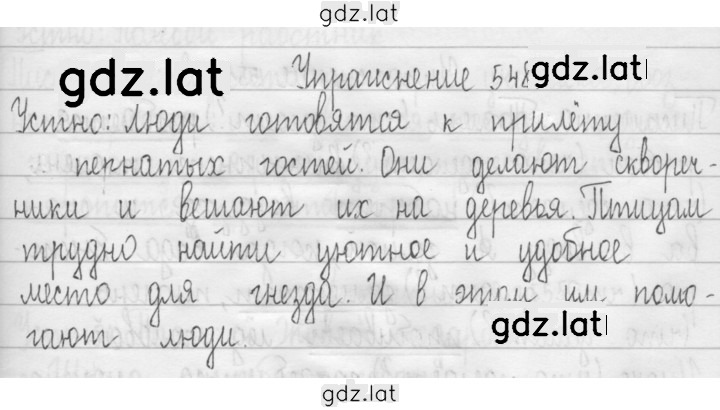 gdz.lat
gdz.lat Упражнение 548 gdz.lat
Устно: Люди готовятся к прилёту
пернатых гостей. Они делают сквореч-
ники и вешают их на деревья. Птицам
трудно найти уютное и удобное
место для гнезда. И в этом им помо-
гают люди. gdz.lat
gdz.lat